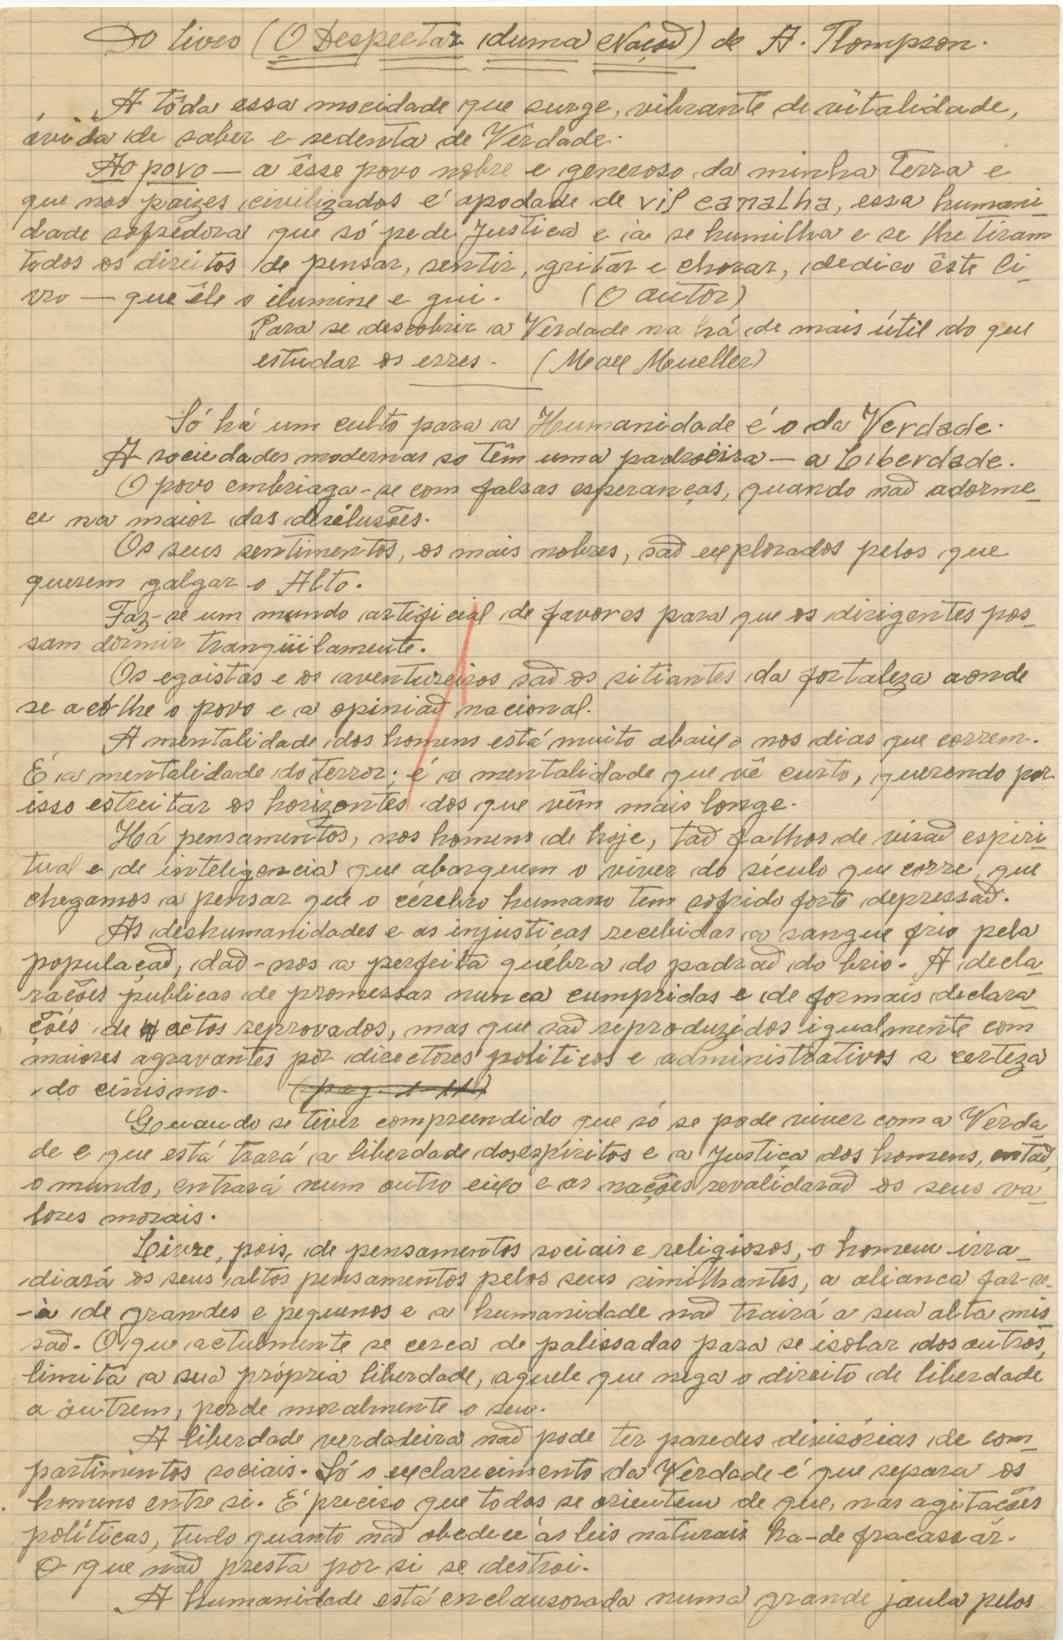 Do livro (O Despertar duma Nação) de A. Thompson.
A tôda essa mocidade que surge, vibrante de vitalidade,
ávida de saber e sedenta de Verdade.
Ao povo — a êsse povo nobre e generoso da minha Terra e
que nos paizes civilizados é apodade de vil canalha, essa humani-
dade sofredora que só pede Justiça e a se humilha e se lhe tiram
todos os direitos de pensar, sentir, gritar e chorar, dedico êste li-
vro — que êle o ilumine e gui. (O autor)
Para se descobrir a Verdade na há de mais útil do que
estudar os erros. (Max Mueller)
Só há um culto para a Humanidade é o da Verdade.
A sociedades modernas so têm uma padroeira — a Liberdade.
O povo embriaga-se com falsas esperanças, quando não adorme-
ce na maior das desilusões.
Os seus sentimentos, os mais nobres, são explorados pelos que
querem galgar o Alto.
Faz-se um mundo artificial de favores para que os dirigentes pos-
sam dormir tranqüilamente.
Os egoistas e os aventureiros são os sitiantes da fortaleza aonde
se acolhe o povo e a opinião nacional.
A mentalidade dos homens está muito abaixo nos dias que correm.
É a mentalidade do terror; é a mentalidade que vê curto, querendo por
isso estreitar os horizontes dos que vêm mais longe.
Há pensamentos, nos homens de hoje, tão falhos de visão espiri-
tual e de inteligencia que abarquem o viver do século que corre, que
chegamos a pensar que o cérebro humano tem sofrido forte depressão.
As deshumanidades e as injustiças recebidas a sangue frio pela
população, dão-nos a perfeita quebra do padrão do brio. A decla-
rações públicas de promessas nunca cumpridas e de formais declara-
ções de actos reprovados, mas que são reproduzidos igualmente com
maiores agravantes por directores politicos e administrativos a certeza
do cinismo. (pag. 1-11)
Quando se tiver compreendido que só se pode viver com a Verda-
de e que está trará a liberdade dos espíritos e a Justica dos homens, então,
o mundo, entrará num outro eixo e as nações revalidarão os seus va-
lores morais.
Livre, pois, de pensamentos sociais e religiosos, o homem irra-
diará os seus altos pensamentos pelos seus similhantes, a aliança far-se-
-á de grandes e pequenos e a humanidade não trairá a sua alta mis-
são. O que actulmente se cerca de palissadas para se isolar dos outros,
limita a sua própria liberdade, aquele que nega o direito de liberdade
a outrem, perde moralmente o seu.
A liberdade verdadeira não pode ter paredes divisórias de com-
partimentos sociais. Só o exclarecimento da Verdade é que separa os
homens entre si. É preciso que todos se orientem de que, nas agitações
políticas, tudo quanto não obedece às leis naturais há-de fracassar.
O que não presta por si se destroi.
A humanidade está enclausorada numa grande jaula pelos